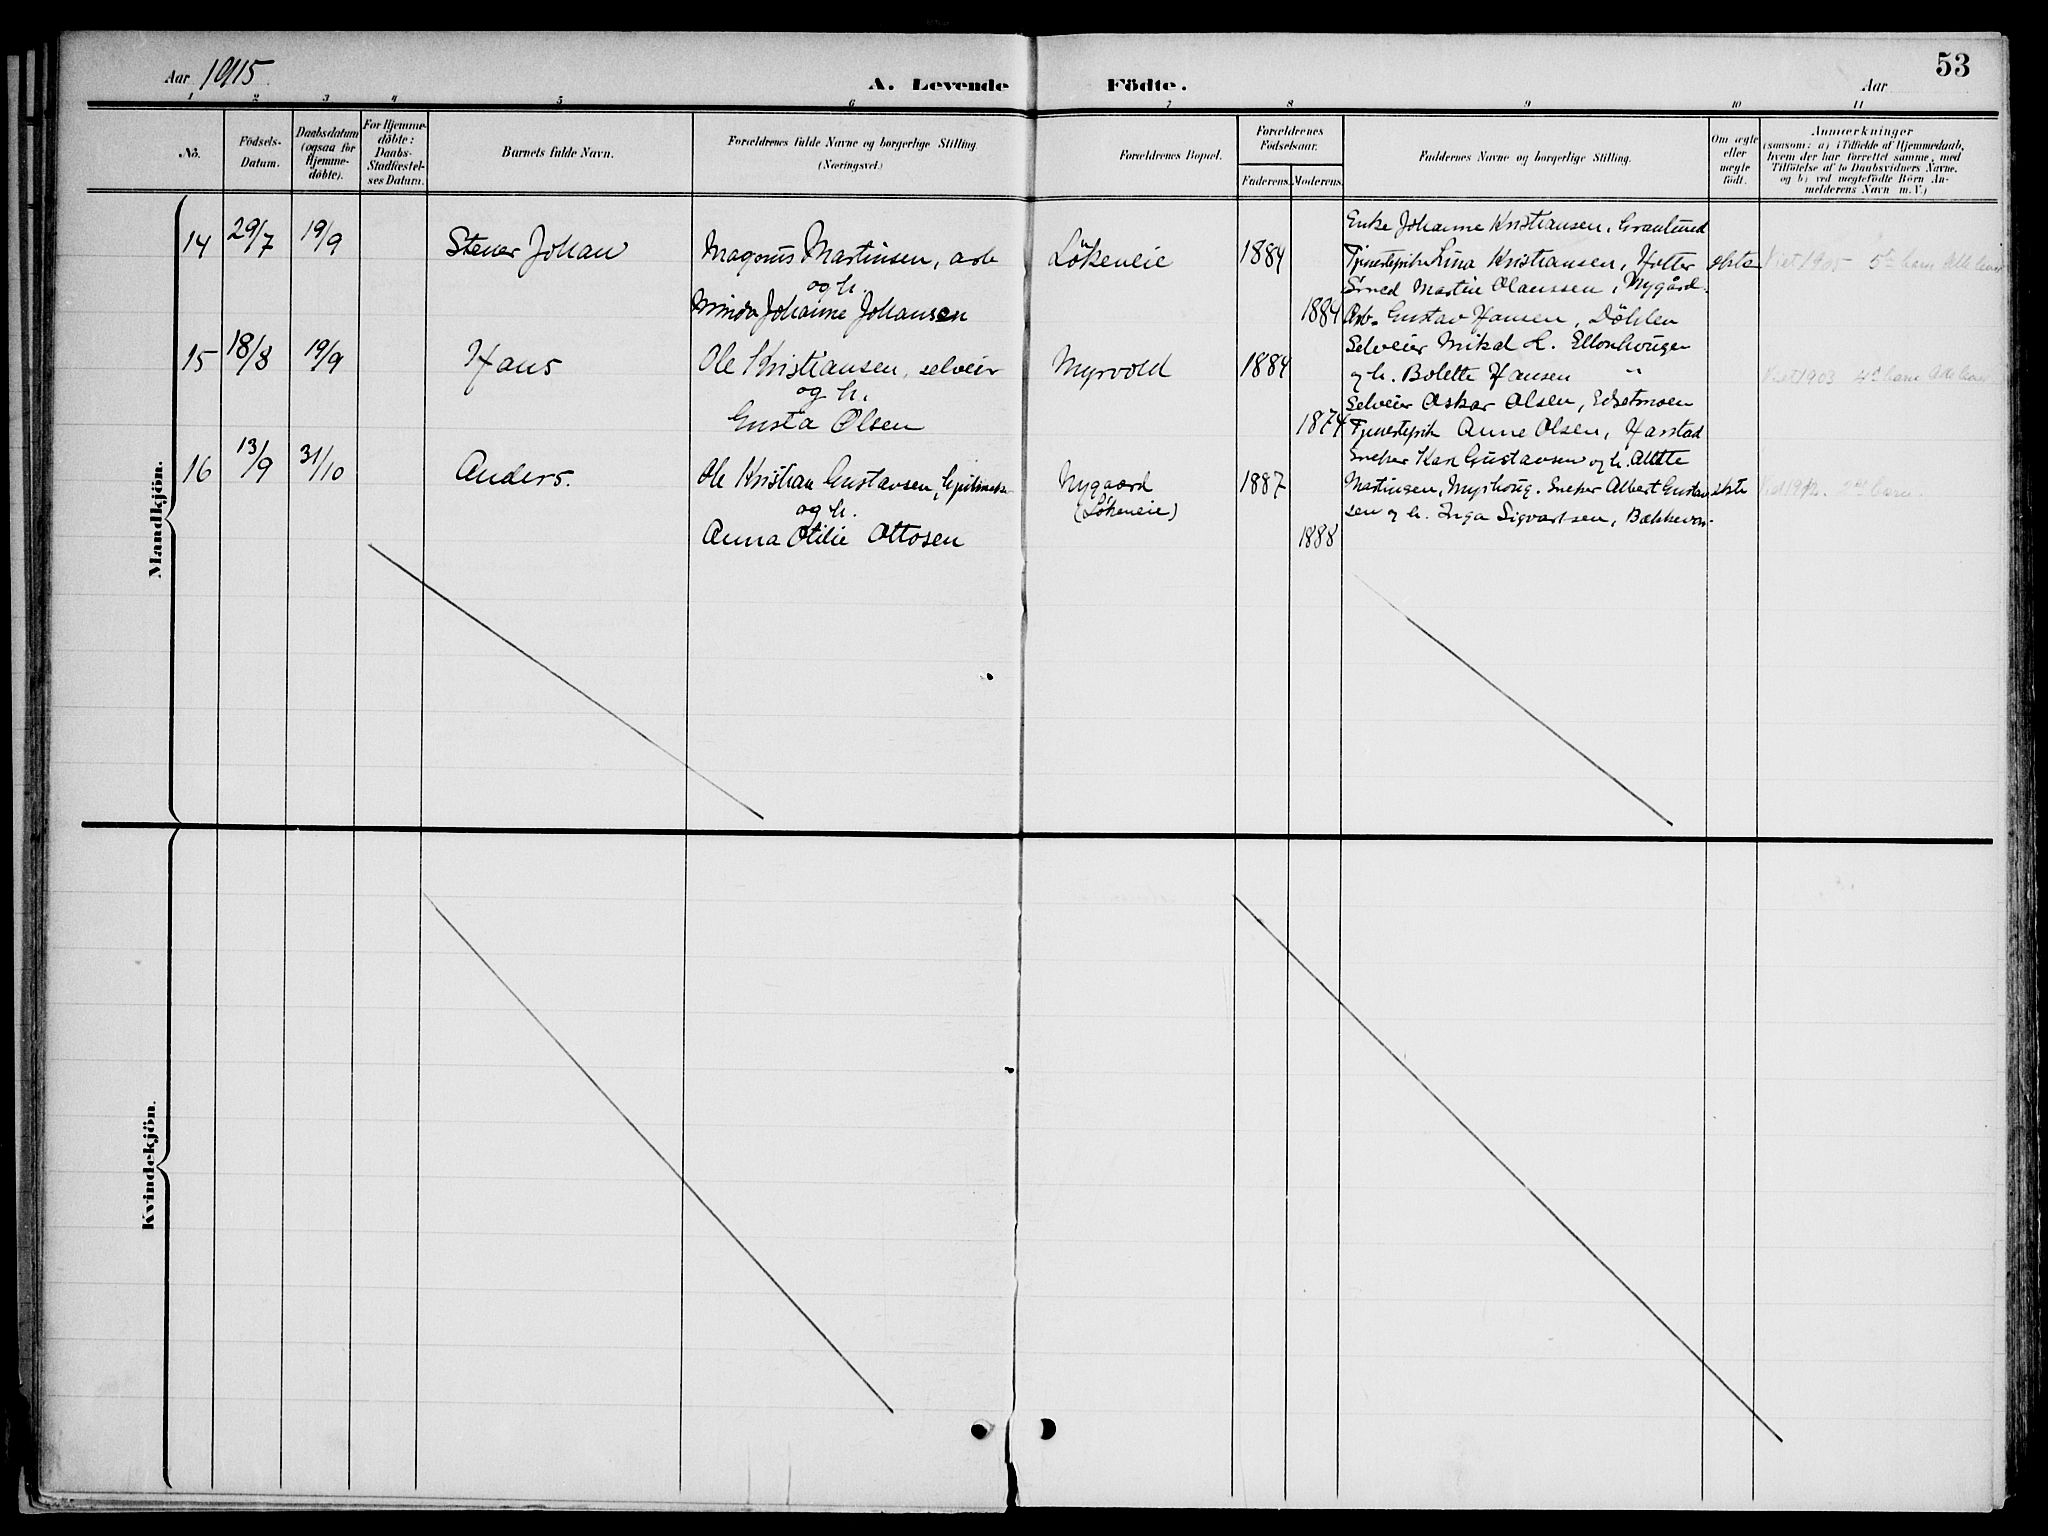 53
Aar 1915
A. Levende Födte.
Aar
1 2 3 4 5 6 7 8 9 10 11
No.
Födsels-
Datum.
Daabsdatum
(ogsaa for
Hjemme-
döbte).
For Hjemme-
döbte:
Daabs-
Stadfæstel-
ses Datum.
Barnets fulde Navn.
Forældrenes fulde Navne og borgerlige Stilling.
(Næringsvei.)
Forældrenes Bopæl.
Forældrenes
Födselsaar.
Faderens. Moderens.
Faddernes Navne og borgerlige Stilling.
Om ægte
eller
uægte
födt.
Anmærkninger
(saasom: a) i Tilfælde af Hjemmedaab,
hvem der har forrettet samme, med
Tilföielse af to Daabsvidners Navne.
og b) ved uægtefödte Börn An-
melderens Navn m. V.)
Mandkjön.
14 29/7 19/9 Stener Johan
Magnus Martinsen, arb
og h.
Minda Johanne Johansen
Lökeneie
1884
1884
Enke Johanne Kristiansen, Granlund
Tjenestepike Lina Kristiansen, Hotter
Smed Martin Olaussen, Nygård.
Arb. Gustav Hansen, Döhlen
ekte
Viet 1905 5te barn Alle lever
15 18/8 19/9 Hans
Ole Kristiansen, selveier
og h.
Gusta Olsen
Myrvold
1884
1874
Selveier Mikal L.
og h. Bolette Hansen "
Selveier Oskar Olsen,
Tjenestepik Anne Olsen, Harstad
Viet 1903 4de barn Alle lever
16 13/9 31/10 Anders.
Ole Kristian Gustavsen,
og h.
Anna Otilie Ottosen
Nygaard
(Lökeneie)
1887
1888
Snekker Karl Gustavsen og h.
Martinsen, Myrhoug. Snekker Albert Gustav
sen og h. Inga Sigvartsen,
ekte
2det barn.
Kvindekjön.